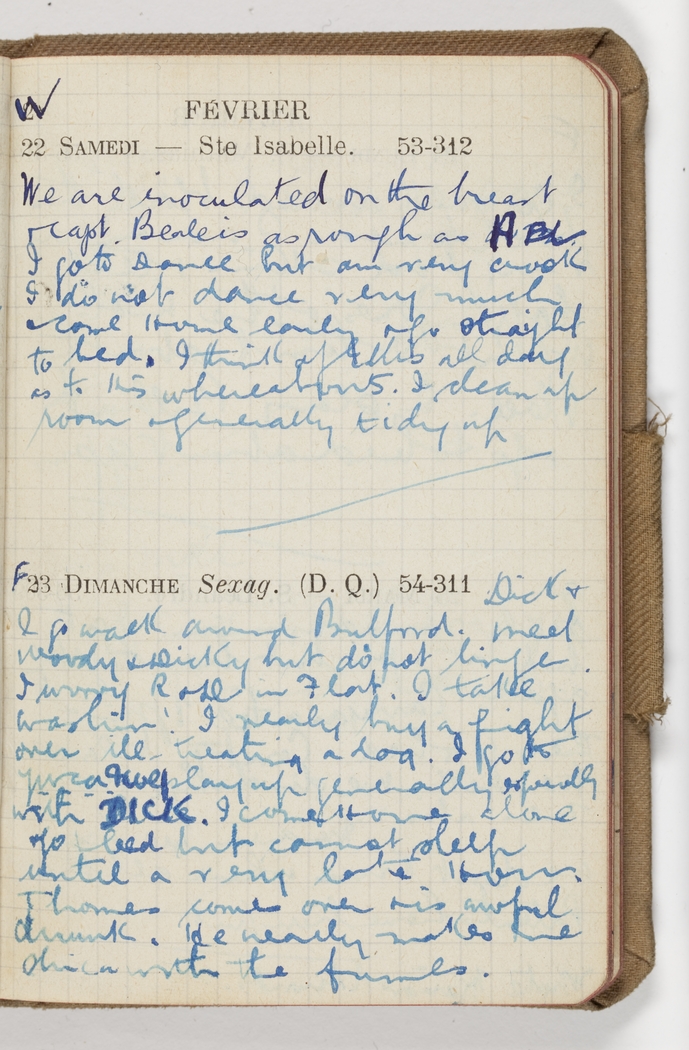 W
FÉVRIER
22 SAMEDI — Ste Isabelle. 53-312
We are inoculated on the breast
& Capt. Beale is as rough as
I go to dance but am very crook
I do not dance very much
& come Home early & go straight
to bed. I think of Ellis all day
as to his whereabouts. I clean up
room & generally tidy up
23 DIMANCHE Sexag. (D. Q.) 54-311 Dick &
I go walk around Bulford. meet
& Dicky but do not linge
I worry R in Float. I take
washin'. I nearly buy a fight
over ill-treating a dog. I go to
& we play up generally especially
with DICK. I come Home alone
go bed but cannot sleep
until a very late Hour.
Thomas comes over & is awful
drunk. He nearly makes me
with the fumes.